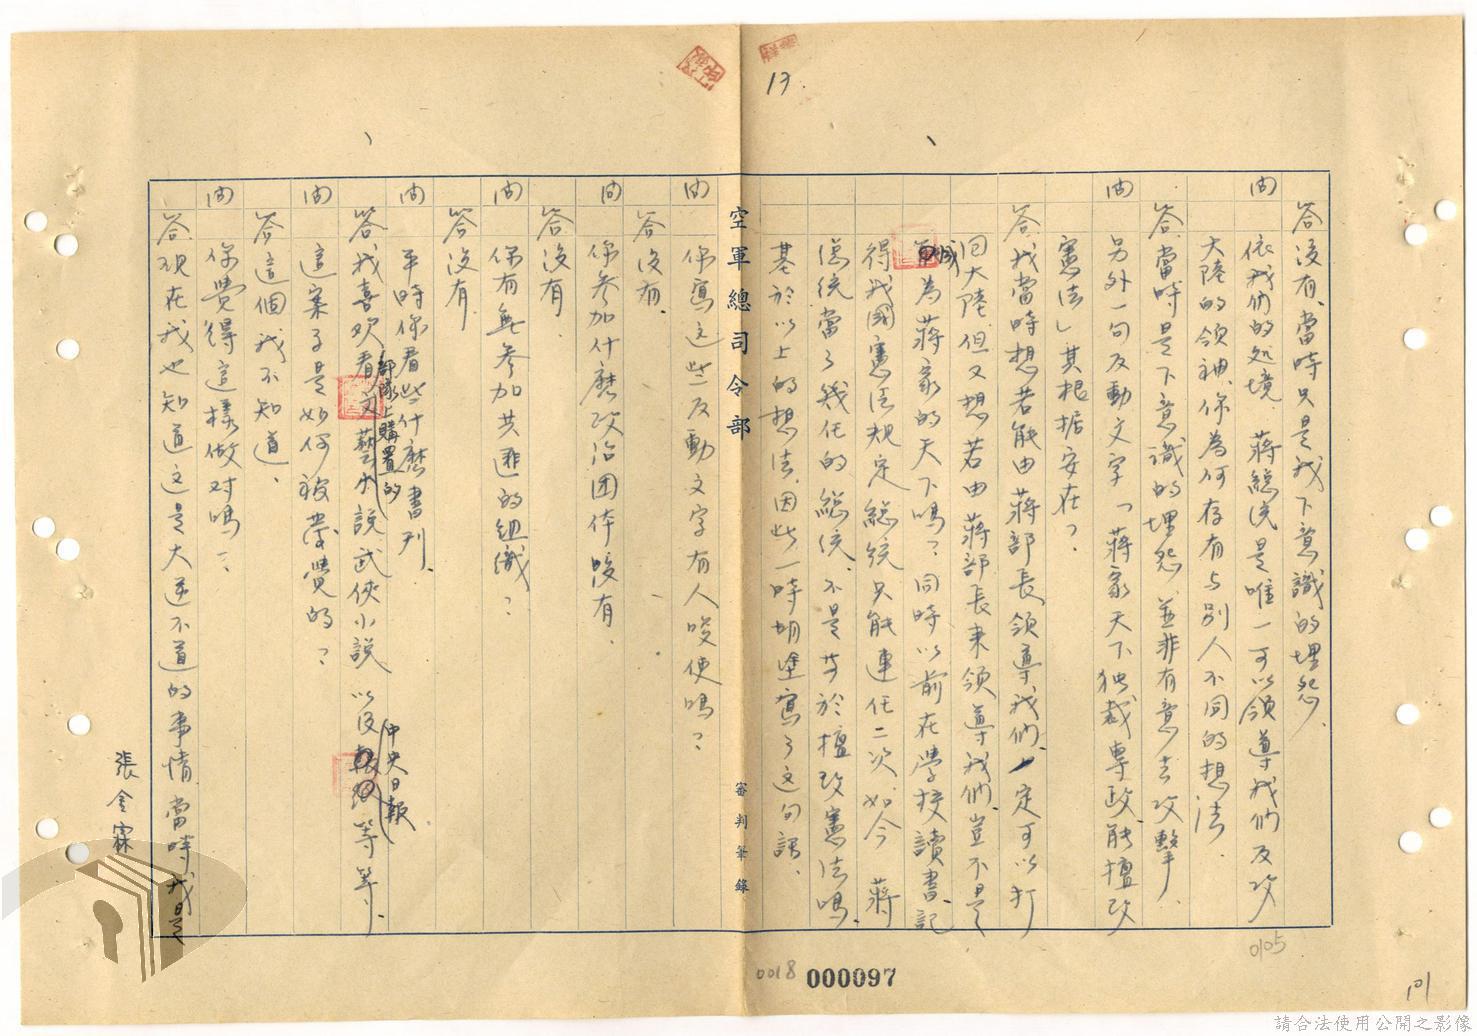 17.
答沒有、當時只是我下意識的埋怨、
問 依我們的处境、蔣總統是唯一可以領導我們反攻
大陸的領袖、你為何存有与別人不同的想法、
答、當時是下意識的埋怨、並非有意去攻擊、
問 另外一句反動文字「蔣家天下独裁專政、能擅改
憲法」其根据安在？
答、我當時想若能由蔣部長領導我們、一定可以打
回大陸、但又想若由蔣部長來領導我們、豈不是
成為蔣家的天下嗎？同時以前在學校讀書、記
得我國憲法規定總統只能連任二次、如今 蔣
總統當了幾任的總統、不是等於擅改憲法嗎、
基於以上的想法、因此一時胡塗寫了这句話、
空軍總司令部
審判筆錄
問 你寫这些反動文字有人唆使嗎？
答沒有、
問 你參加什麼政治团体沒有、
答沒有
問 你有無參加共匪的組織？
答沒有
問 平時你看些什麼書刊、
答我喜欢看部隊上購置的文藝小說武俠小說以及中央日報等等、
問 這案子是如何被發覺的？
答這個我不知道、
問 你覺得這樣做对嗎？
答、現在我也知道这是大逆不道的事情、當時我是
張金霖
0105
0018
000097
101
請合法使用公開之影像